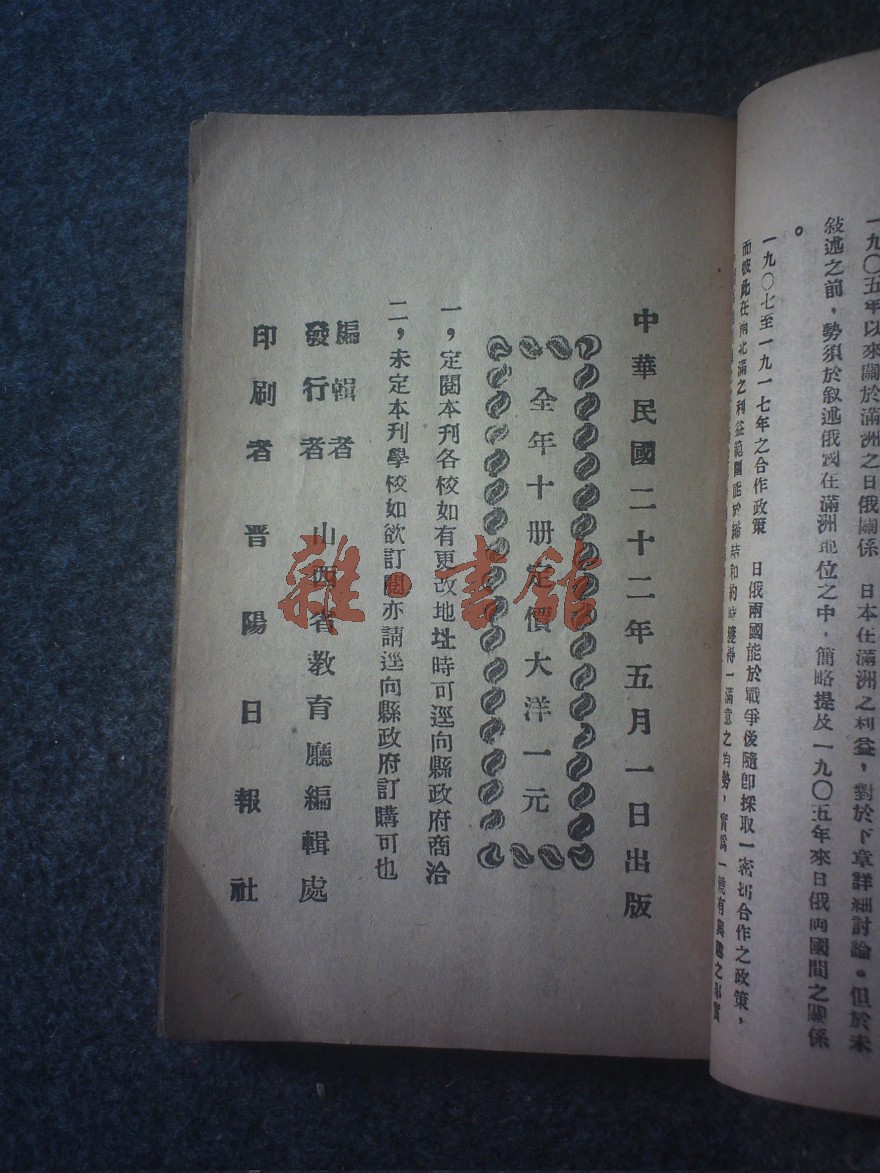 一九〇五年以來關於滿洲之日俄關係　日本在滿洲之利益，對於下章詳細討論。但於未
敍述之前，勢須於叙述俄國在滿洲地位之中，簡略提及一九〇五年來日俄両國間之關係
。
一九〇七至一九一七年之合作政策　日俄兩國能於戰爭後隨卽採取一密切合作之政策，
而彼此在南北滿之利益範圍能於締結和約時獲得一滿意之均勢，實爲一饒有興趣之事實
中華民國二十二年五月一日出版
全年十册定價大洋一元
一，定閱本刊各校如有更改地址時可逕向縣政府商洽
二，未定本刊學校如欲訂閱亦請逕向縣政府訂購可也
編輯者
發行者　山西省教育廳編輯處
印刷者　晋陽日報社
雜·書館